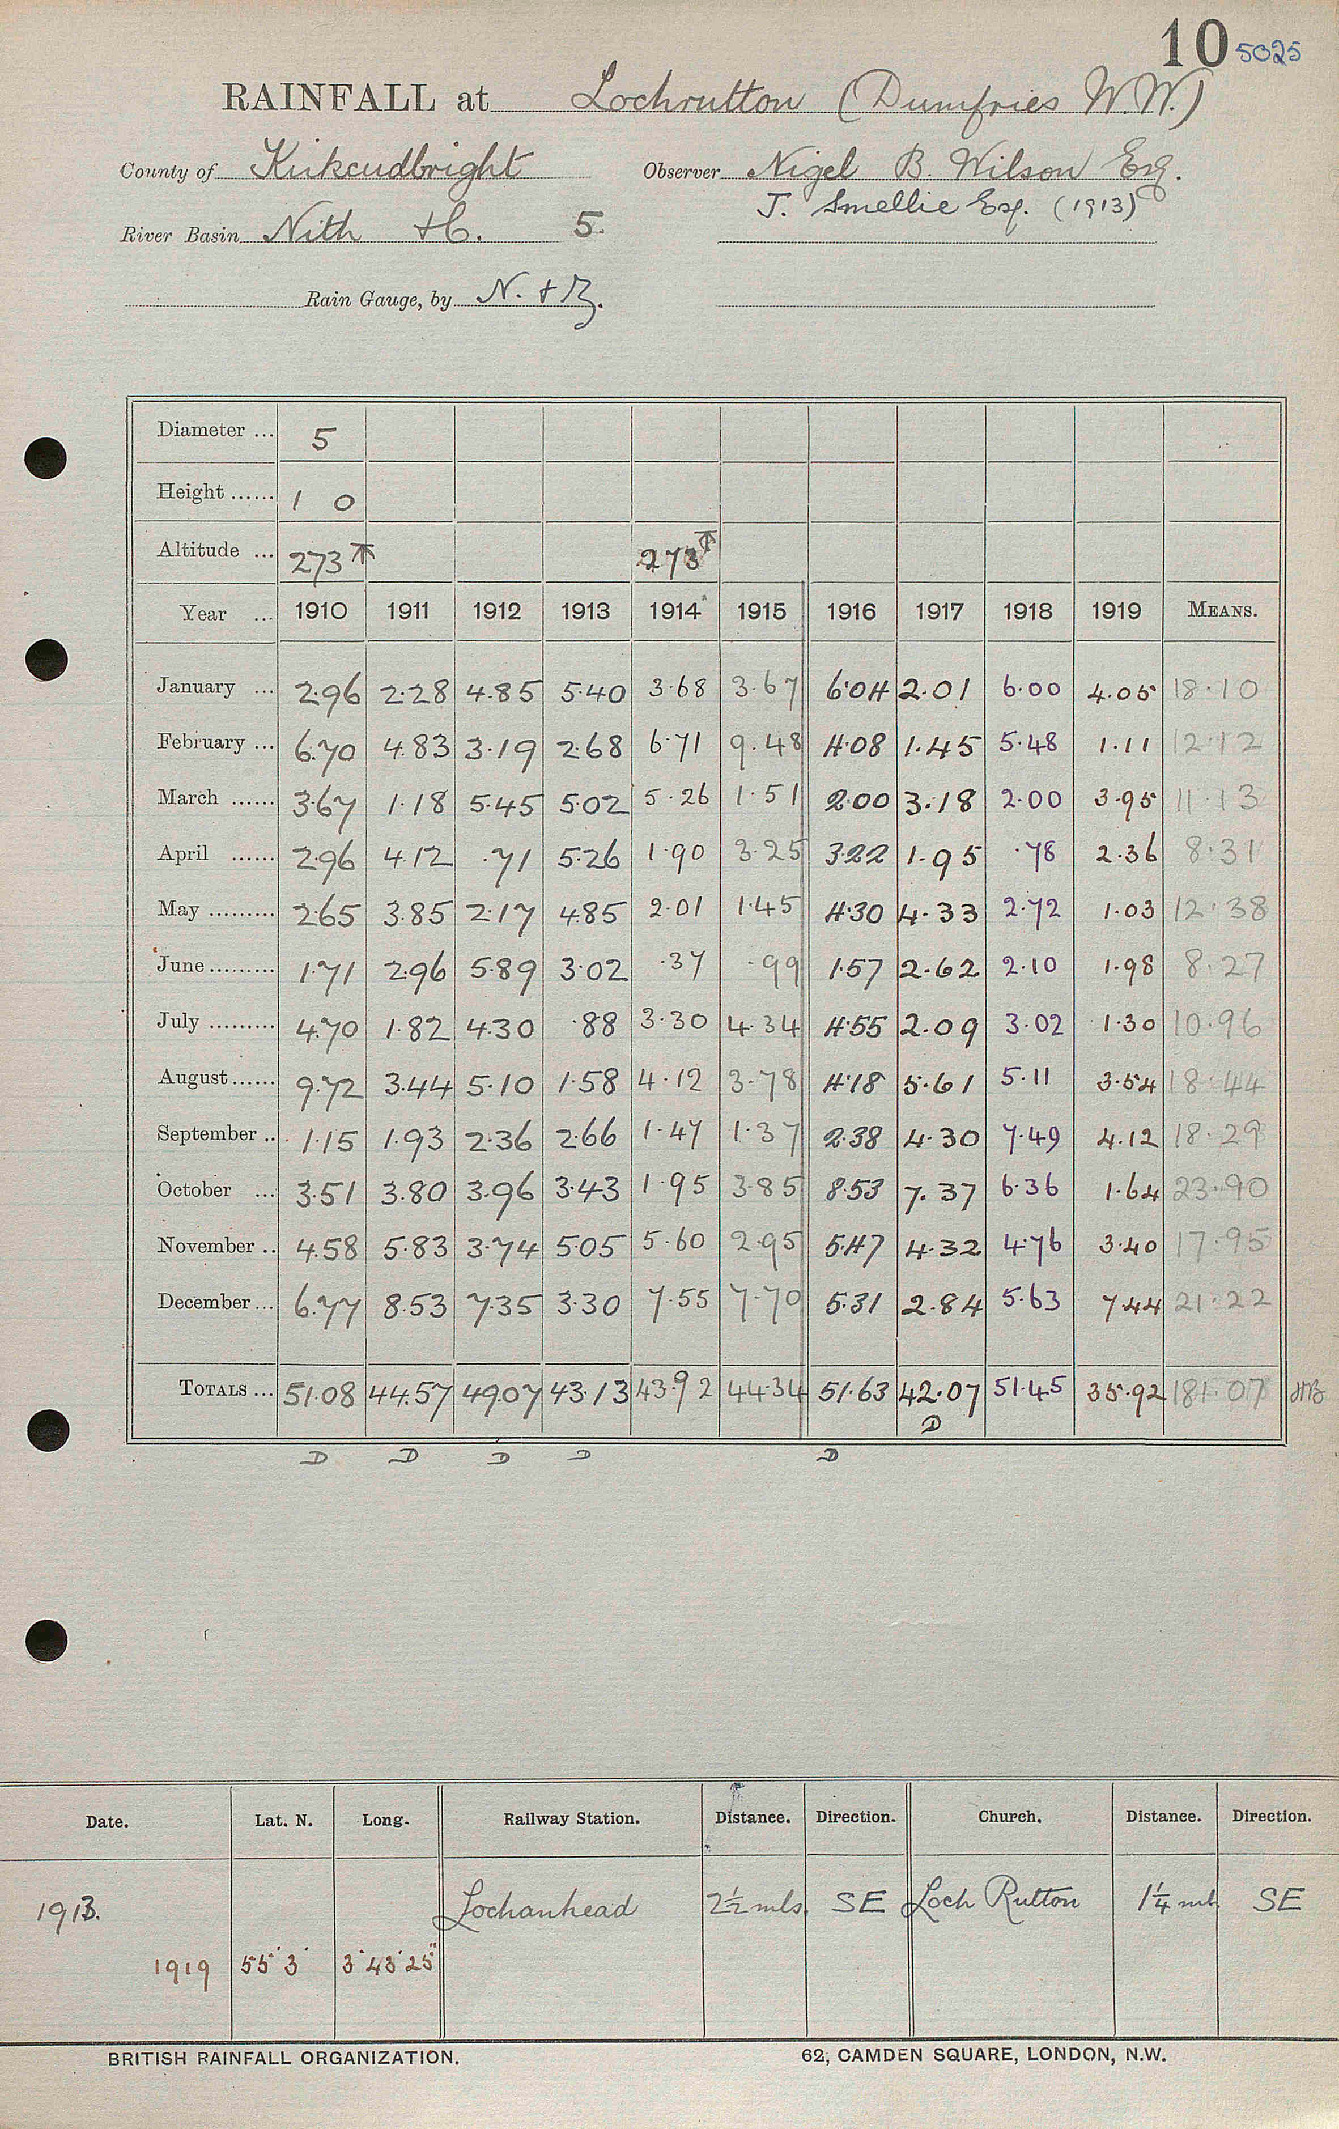 10 5025
RAINFALL at Lochrutton (Dumfries W.W.)
County of Kirkcudbright Observer Nigel B. Wilson Esq.
J. Smellie Esq. (1913)
River Basin Nith &c. 5
Rain Gauge, by N. & Z.
Diameter ... 5
Height ...... 1 0
Altitude ... 273 ↑ 273 ↑
Year ... 1910 1911 1912 1913 1914 1915 1916 1917 1918 1919 MEANS.
January ... 2.96 2.28 4.85 5.40 3.68 3.67 6.04 2.01 6.00 4.05 18.10
February ... 6.70 4.83 3.19 2.68 6.71 9.48 4.08 1.45 5.48 1.11 12.12
March ...... 3.67 1.18 5.45 5.02 5.26 1.51 2.00 3.18 2.00 3.95 11.13
April ...... 2.96 4.12 .71 5.26 1.90 3.25 3.22 1.95 .78 2.36 8.31
May ......... 2.65 3.85 2.17 4.85 2.01 1.45 4.30 4.33 2.72 1.03 12.38
June ......... 1.71 2.96 5.89 3.02 .37 .99 1.57 2.62 2.10 1.98 8.27
July ......... 4.70 1.82 4.30 .88 3.30 4.34 4.55 2.09 3.02 1.30 10.96
August ...... 9.72 3.44 5.10 1.58 4.12 3.78 4.18 5.61 5.11 3.54 18.44
September .. 1.15 1.93 2.36 2.66 1.47 1.37 2.38 4.30 7.49 4.12 18.29
October ... 3.51 3.80 3.96 3.43 1.95 3.85 8.53 7.37 6.36 1.64 23.90
November .. 4.58 5.83 3.74 5.05 5.60 2.95 5.47 4.32 4.76 3.40 17.95
December ... 6.77 8.53 7.35 3.30 7.55 7.70 5.31 2.84 5.63 7.44 21.22
TOTALS ... 51.08 44.57 49.07 43.13 43.92 44.34 51.63 42.07 51.45 35.92 181.07
D
D D D D D
Date. Lat. N. Long. Railway Station. Distance. Direction. Church. Distance. Direction.
1913. Lochanhead 2½ mls. SE Loch Rutton 1¼ ml SE
1919 55° 3' 3° 43' 25"
BRITISH RAINFALL ORGANIZATION. 62, CAMDEN SQUARE, LONDON, N.W.